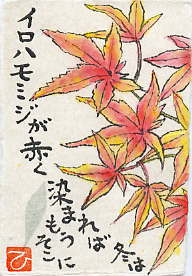 イロハモミジが赤く
染まれば
冬は
もうそこに
ひ